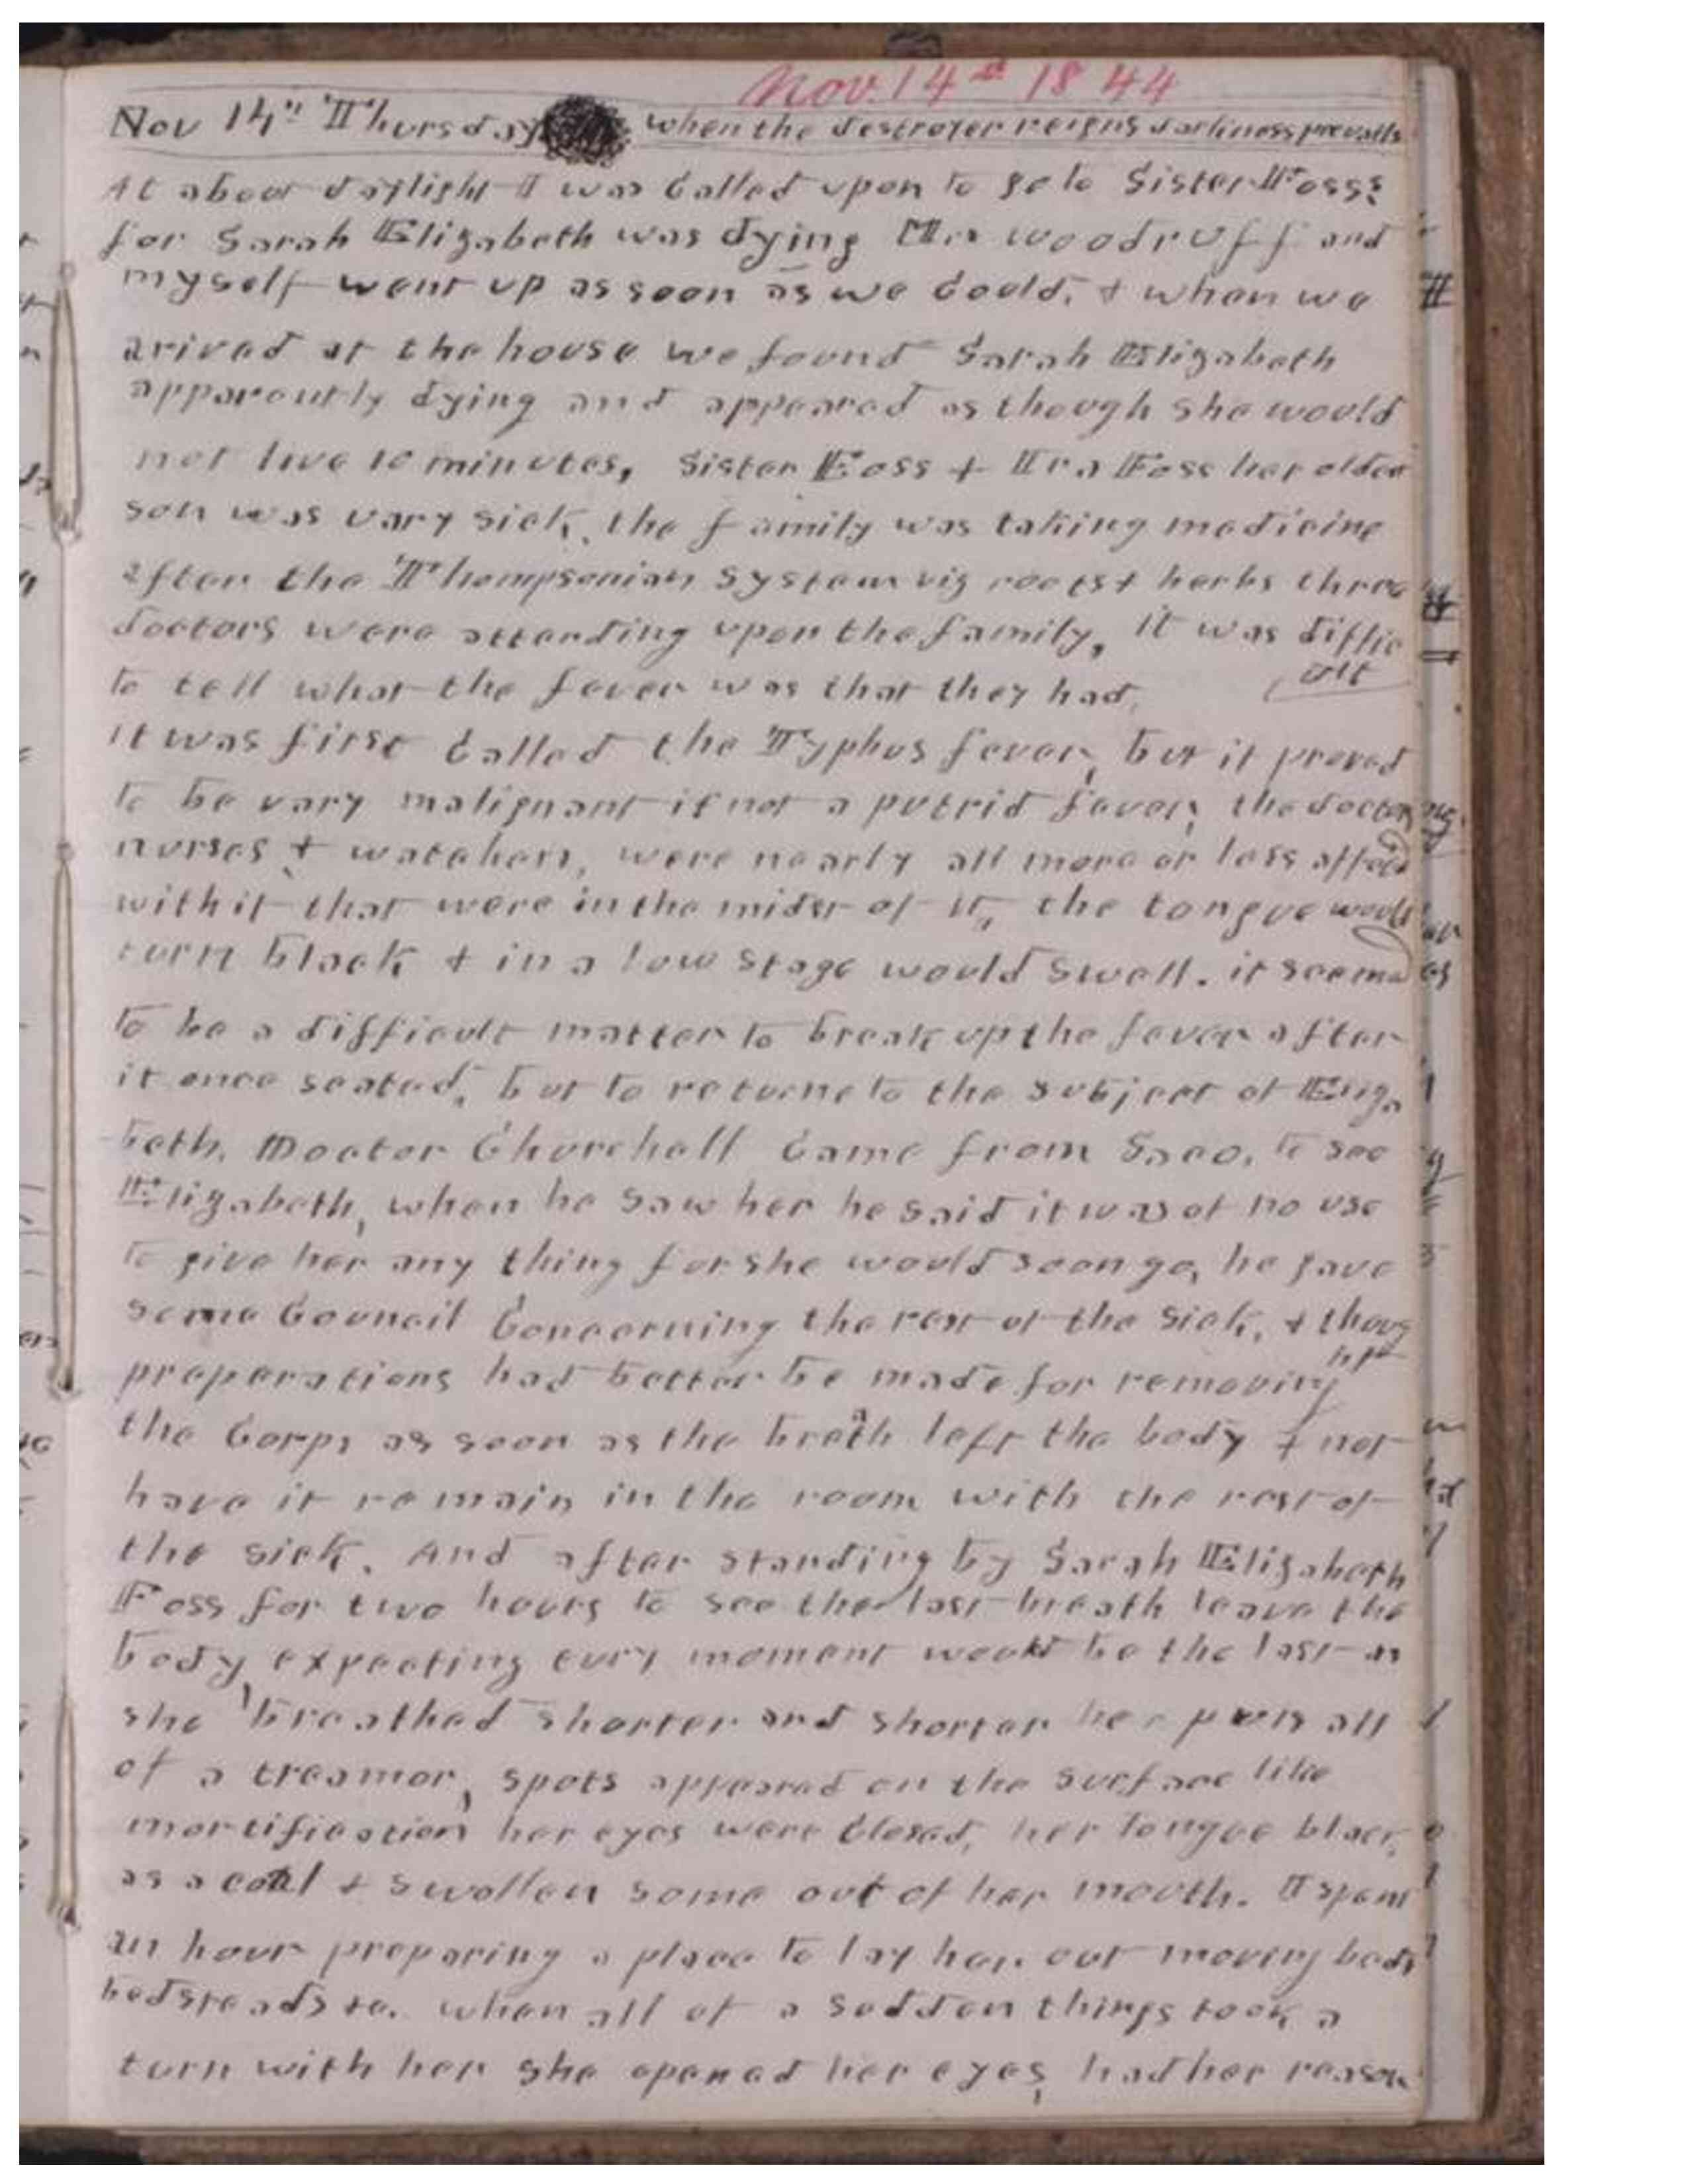 Nov. 14th 1844
Nov 14th Thursday when the destroyer reigns darkness prevails
At about daylight I was Called upon to go to Sister Foss's
for Sarah Elizabeth was dying Mrs Woodruff and
myself went up as soon as we Could, & when we
arived at the house we found Sarah Elizabeth
apparently dying and appeared as though she would
not live 10 minutes, Sister Foss & Ira Foss her oldest
son was vary sick, the family was taking medicine
after the Thompsonian System viz roots & herbs three
doctors were attending upon the family, it was diffic
ult
to tell what the fever was that they had,
it was first Called the Typhus fever, but it proved
to be vary malignant if not a putrid fever, the doctors
nurses & watchers, were nearly all more or less affected
with it that were in the midst of it, the tongue would
turn black & in a low stage would swell. it seemed
to be a difficult matter to break up the fever after
it once seated, but to returne to the subject of Eliza
beth. Doctor Churchell Came from Saco, to see
Elizabeth, when he saw her he said it was of no use
to give her any thing for she would soon go, he gave
some Council Concerning the rest of the sick, & thoug
ht
preparations had better be made for removing
the Corps as soon as the breath left the body & not
have it remain in the room with the rest of
the sick. And after standing by Sarah Elizabeth
Foss for two hours to see the last breath leave the
body, expecting evry moment would be the last as
she breathed shorter and shorter her puls all
of a treamor, spots appeared on the surface like
mortification her eyes were Closed, her tongue black
as a coal & swollen some out of her mouth. I spent
an hour preparing a place to lay her out moving beds
bedsteads &c. when all of a sudden things took a
turn with her she opened her eyes, had her reason